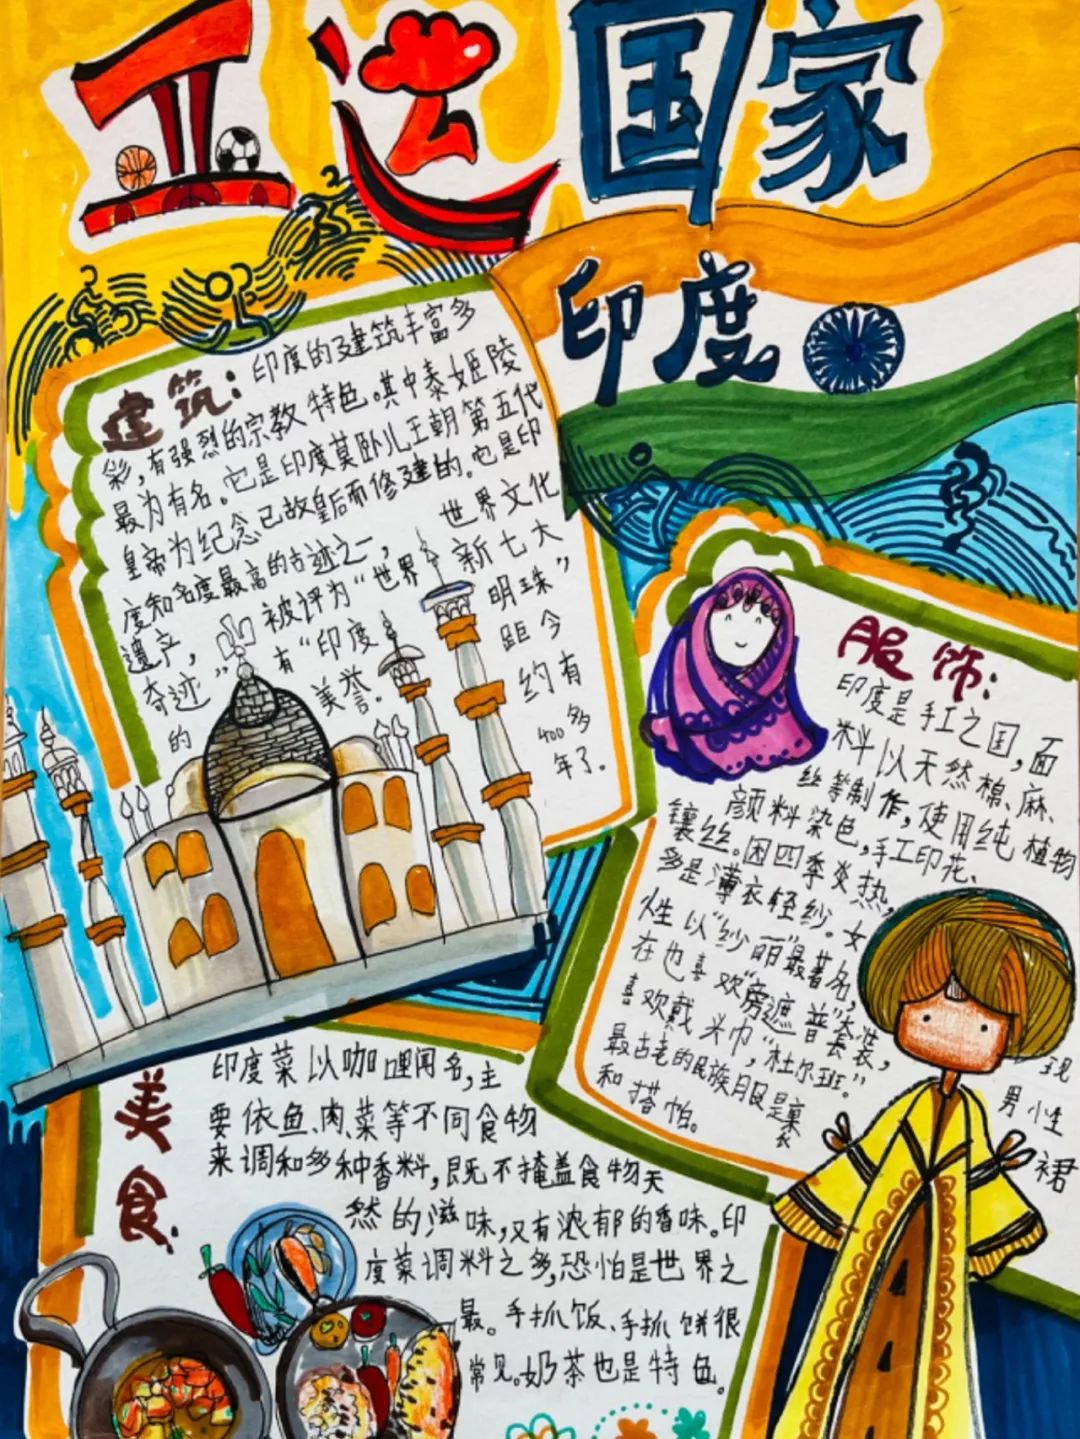 亚运国家
印度
建筑：
印度的建筑丰富多
彩，有强烈的宗教特色。其中泰姬陵
最为有名。它是印度莫卧儿王朝第五代
皇帝为纪念已故皇后而修建的。它是印
度知名度最高的古迹之一， 世界文化
遗产， 被评为“世界 新七大
奇迹” 有“印度 明珠”
的 美誉. 距今
约有
400多
年了.
服饰：
印度是手工之国，面
料以天然棉、麻、
丝等制作，使用纯植物
颜料染色，手工印花、
镶丝。因四季炎热，
多是薄衣轻纱。女
性以“纱丽”最著名，
现在也喜欢“旁遮普”套装，
男性喜欢戴头巾，“杜尔班”。
最古老的民族服是裹裙
和搭帕。
美食：
印度菜以咖喱闻名，主
要依鱼、肉、菜等不同食物
来调和多种香料，既不掩盖食物天
然的滋味，又有浓郁的香味。印
度菜调料之多，恐怕是世界之
最。手抓饭、手抓饼很
常见。奶茶也是特色。